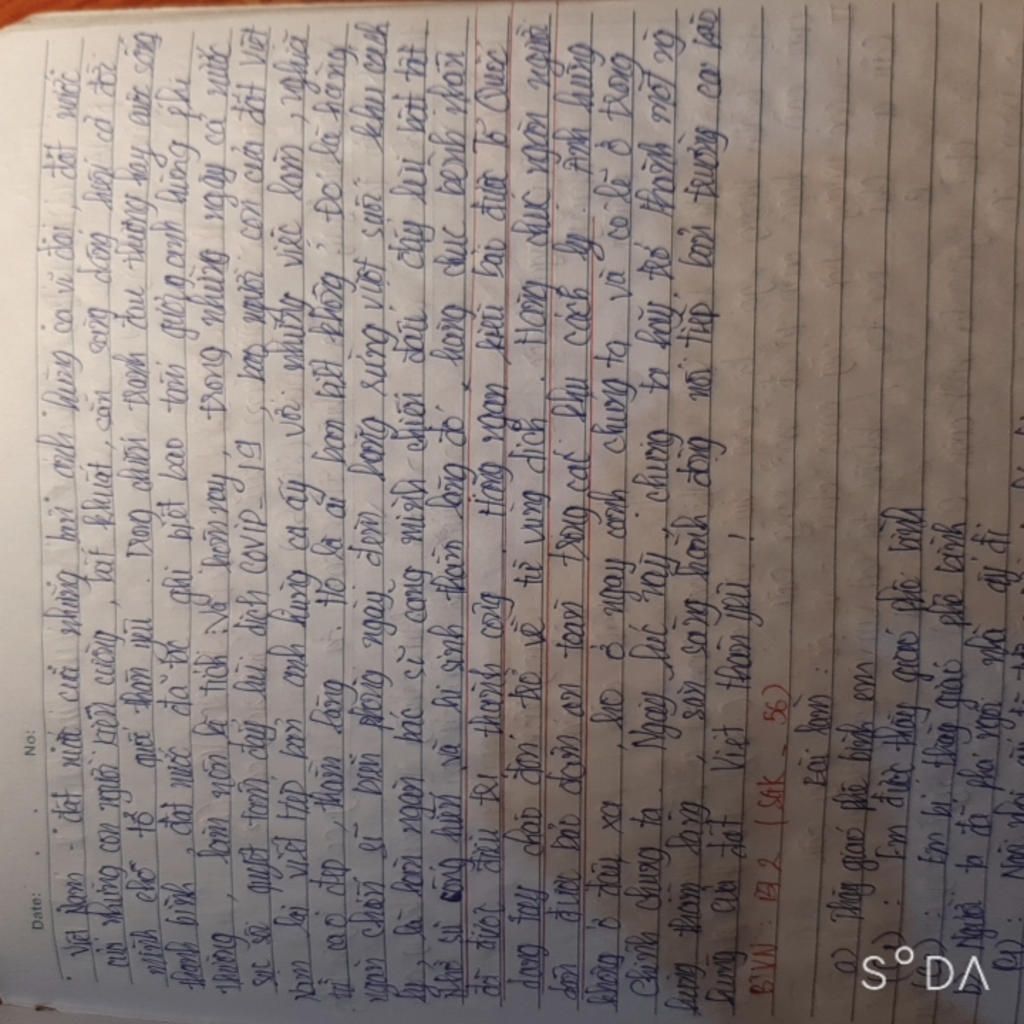 Date: No:
Việt Nam - đất nước của những bài anh hùng ca vĩ đại, đất nước
của những con người kiên cường, bất khuất, sẵn sàng dâng hiến cả đời
mình cho tổ quốc thân yêu. Trong chiến tranh đau thương hay cuộc sống
thanh bình, đất nước đã từ ghi biết bao tấm gương anh hùng phi
thường, làm nên kì tích. Và hôm nay, trong những ngày cả nước
sục sôi quyết tâm đẩy lùi dịch COVID-19, bao người con của đất Việt
Nam lại viết tiếp bản anh hùng ca ấy với những việc làm, nghĩa
cử cao đẹp, thầm lặng. Họ là ai bạn biết không? Đó là hàng
ngàn chiến sĩ biên phòng ngày đêm băng rừng vượt suối khu cách
ly là hàng ngàn bác sĩ đang mình chiến đấu đẩy lùi bất tật
Nhờ sự cống hiến và hi sinh thầm lặng đó hàng chục bệnh nhân
đã được điều trị thành công, hàng ngàn kiều bào được Tổ Quốc
dang tay chào đón trở về từ vùng dịch. Hàng chục ngàn người
dân được bảo đảm an toàn trong các khu cách ly. Anh hùng
không ở đâu xa, họ ở ngay cạnh chúng ta và có lẽ ở trong
Chính chúng ta. Ngay lúc này chúng ta hãy trở thành một ng
hùng thầm lặng, sẵn sàng hành động nối tiếp bài trường ca hào
hùng của đất Việt thân yêu!
BTVN: B 2 (SGK - 56)
Bài làm:
a) Thầy giáo phê bình em
Em được thầy giáo phê bình
Em bị thầy giáo phê bình
b) Người ta đã phá ngôi nhà ấy đi
Ngôi nhà ấy đã